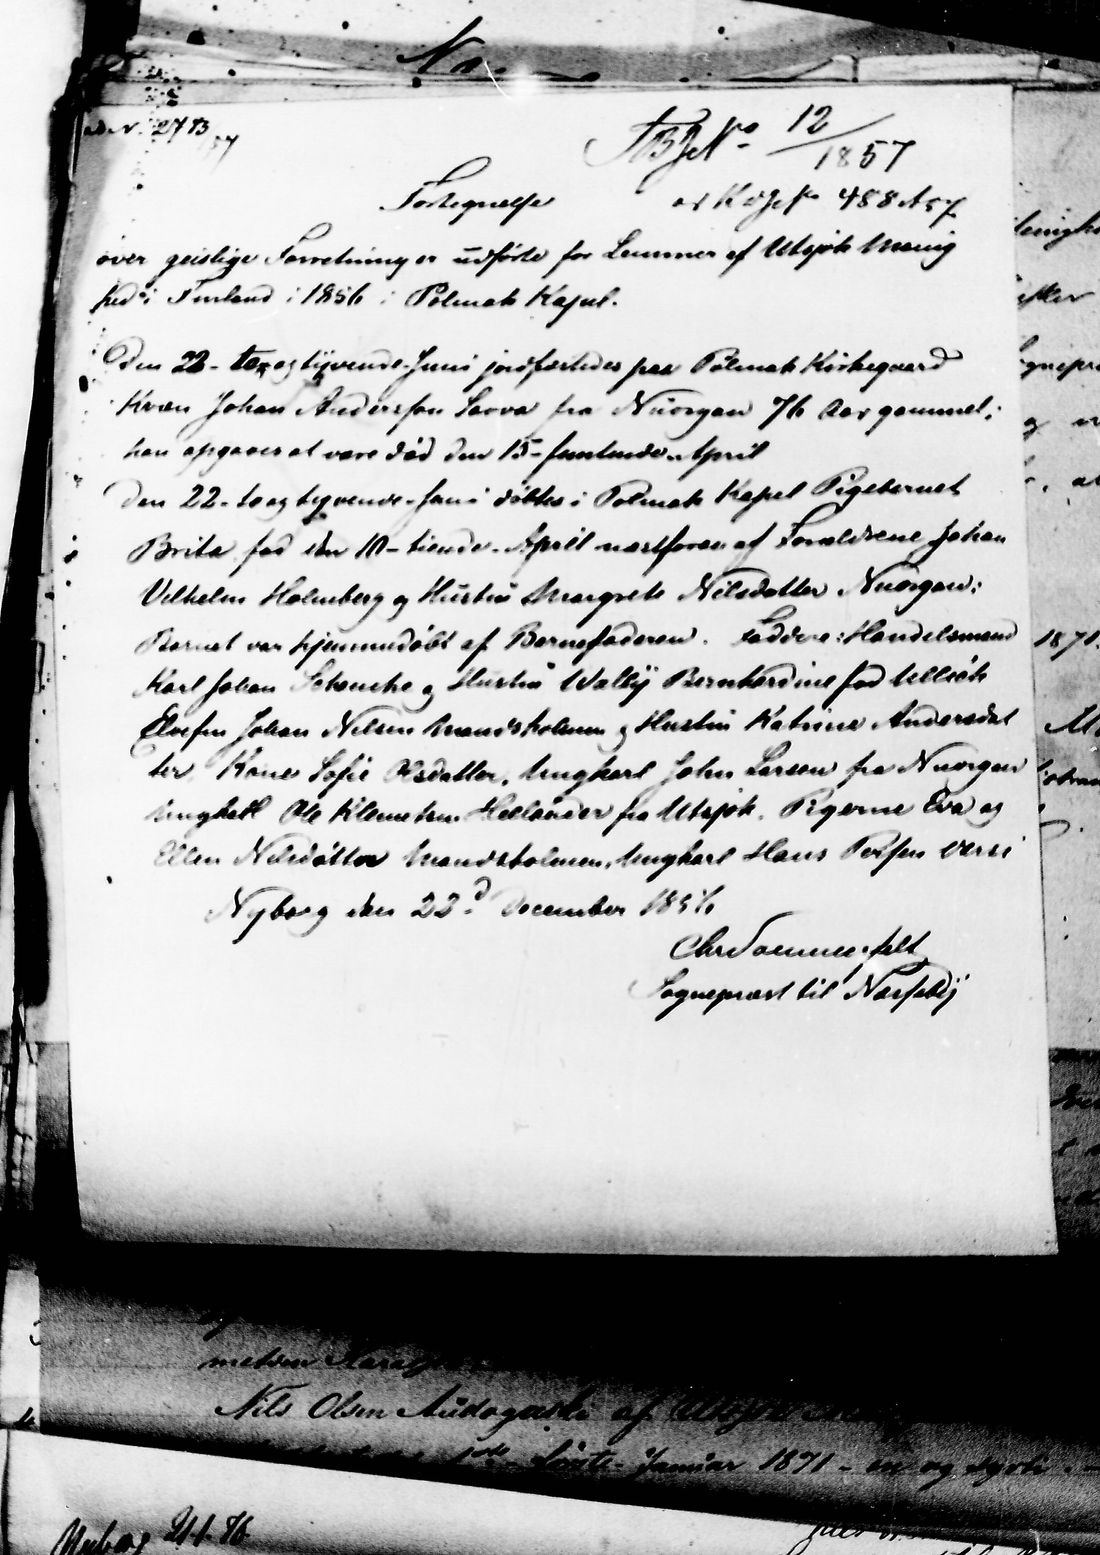 No 2473/57
12/1857
Fortegnelse
488 57
over geistlige Forretninger udførte for Lemmer af Utsjok Menig
hed i Finland i 1856 i Polmak Kapel.
Den 22- to og tyvende Juni jordfæstedes paa Polmak Kirkegaard
Kvæn Johan Andersson Savva fra Nuorgan 76 Aar gammel;
han opgaves at være død den 15- femtende April
Den 22- to og tyvende Juni døbtes i Polmak Kapel Pigebarnet
Brita fød den 10- tiende April næstforan af Forældrene Johan
Vilhelm Holmberg og Hustru Margrete Nilsdatter Nuorgan;
Barnet var hjemmedøbt af Barnefaderen. Faddere: Handelsmand
Karl Johan Schanche og Hustru Wally Bernhardine fød
Johan Nilsen Mandsholmen og Hustru Katrine Andersdat
ter, Kone Sofie Olsdatter, Ungkarl John Larsen fra Nuorgan
Ungkarl Ole Klemetsen Hellander fra Utsjok, Pigerne Eva og
Ellen Nilsdøttre Mandsholmen, Ungkarl Hans
Nyborg den 22d December 1856
Chr Sommerfelt
Sognepræst til Næsseby
1871
Nils Olsen af Utsjok
første Januar 1871 - en og
Nyborg 21/1 76